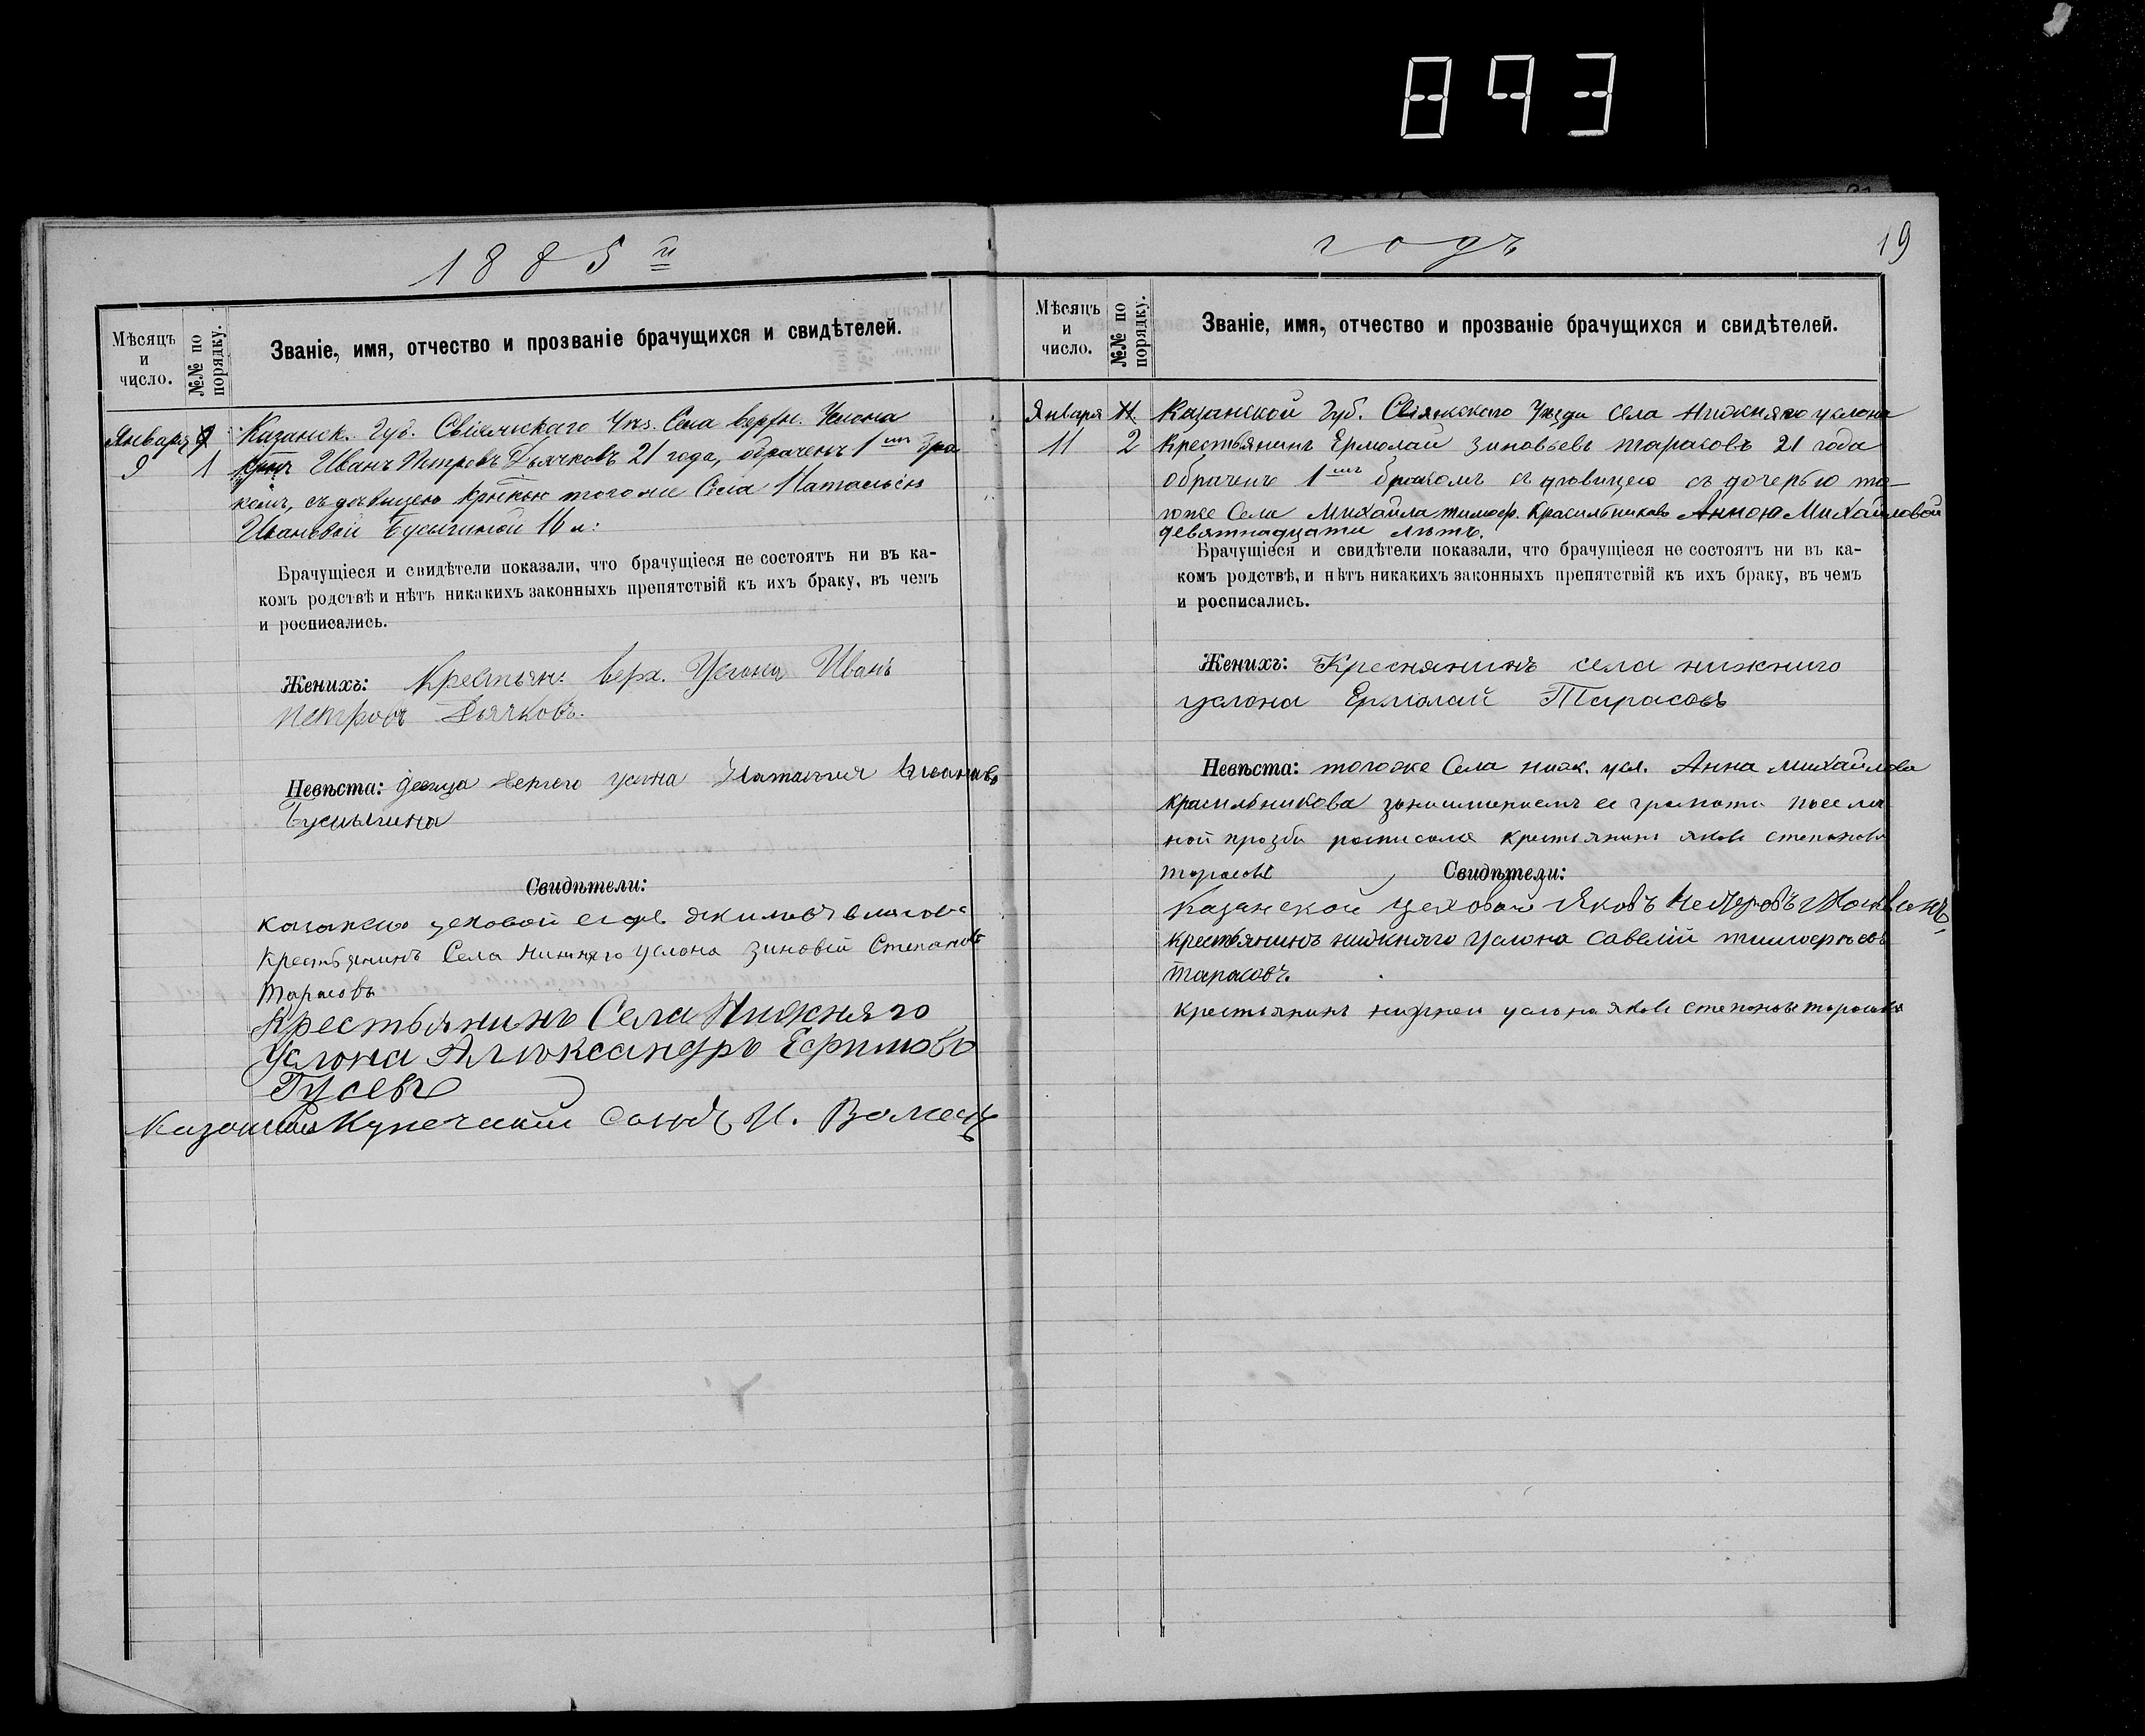 893
1885й
Мѣсяцъ и число.
№№ по порядку.
Званіе, имя, отчество и прозваніе брачущихся и свидѣтелей.
Января
9 1
Казанск. Губ. Свіяжскаго Уѣз. Села Верхн. Услона
Иванъ Петровъ Дьячковъ 21 года, обраченъ 1мъ бра
комъ, съ дѣвицею тогоже Села Наталью
Ивановой Бусыгиной 16 л:
Брачущіеся и свидѣтели показали, что брачущіеся не состоятъ ни въ ка-
комъ родствѣ и нѣтъ никакихъ законныхъ препятствій къ ихъ браку, въ чемъ
и росписались.
Женихъ: Крестьян: верх. Услона Иванъ
Петровъ Дьячковъ.
Невѣста: девица услона Наталия
Бусыгина
Свидѣтели:
цеховой
Крестьянинъ Села Нижняго Услона Зиновій Степановъ
Тарасовъ
Крестьянинъ Села Нижняго
Услона Александръ Ефимовъ
Гусевъ
Купеческий сынъ И.
годъ
19
Мѣсяцъ и число.
№№ по порядку.
Званіе, имя, отчество и прозваніе брачущихся и свидѣтелей.
Января
11 2
Казанской Губ. Свіяжскаго Уѣзда села Нижняго услона
Крестьянинъ Ермолай Зиновьевъ Тарасовъ 21 года
обраченъ 1мъ бракомъ съ дѣвицею съ дочерью то-
гоже Села Михайла Тимоф. Красильникова Анною Михайловой
девятнадцати лѣтъ.
Брачущіеся и свидѣтели показали, что брачущіеся не состоятъ ни въ ка-
комъ родствѣ, и нѣтъ никакихъ законныхъ препятствій къ ихъ браку, въ чемъ
и росписались.
Женихъ: Креснянинъ села нижниго
услона Ермолай Тарасовъ
Невѣста: тогоже Села ниж. усл. Анна Михайлова
Красильникова ее грамоти поеелич
ной прозби росписался крестьянин яков степанов
тарасовъ
Свидѣтели:
Казанской Цеховой Яковъ
Крестьянинъ нижняго Услона Савелій тимофѣевъ
Тарасовъ.
Крестьянинъ нижней услона яков степановъ торосовъ